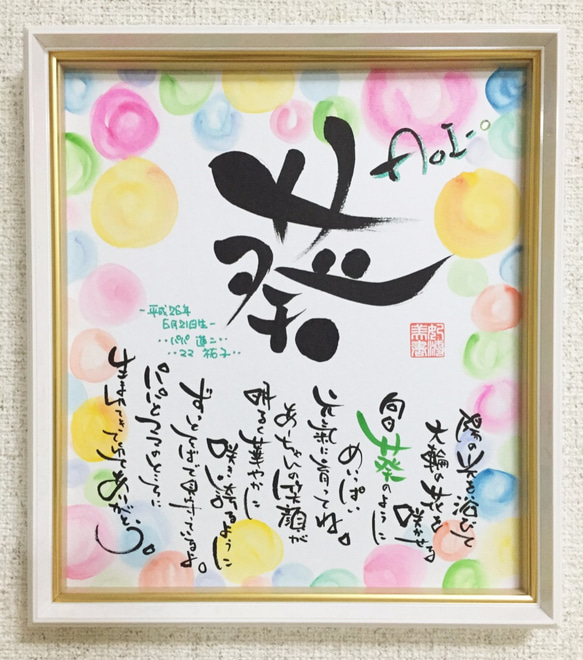 葵
AOI
-平成26年
6月21日生-
‥パパ 進二‥
‥ママ 祐子‥
陽の光を浴びて
大輪の花を
咲かせる
向日葵のように
めいっぱい
元気に育ってね。
の笑顔が
明るく華やかに
咲き誇るように
ずっとそばで見守っているよ。
パパとママのところに
生まれてきてくれてありがとう。